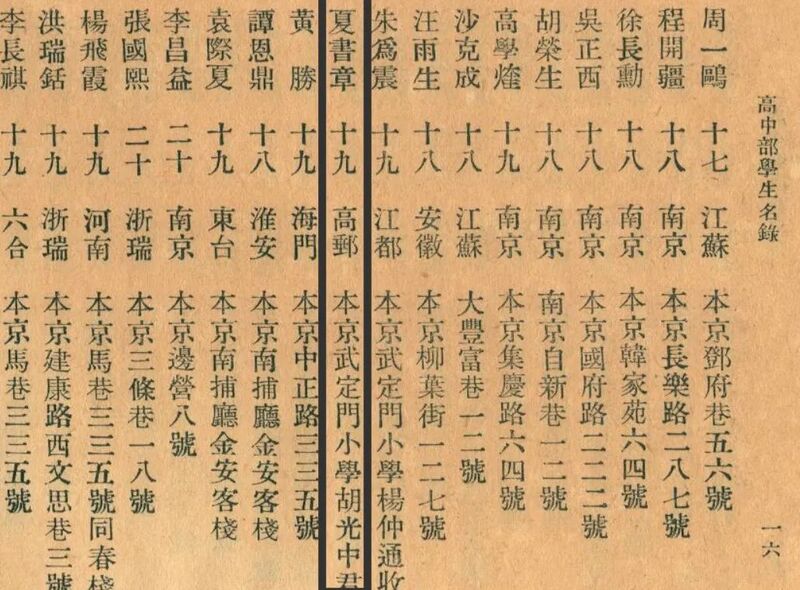 高中部學生名錄
一六
周一鷗 十七 江蘇 本京鄧府巷五六號
程開疆 十八 南京 本京長樂路二八七號
徐長勳 十八 南京 本京韓家苑六四號
吳正西 十八 南京 本京國府路二二二號
胡榮生 十八 南京 南京自新巷一二號
高學煃 十九 南京 本京集慶路六四號
沙克成 十八 江蘇 大豐富巷一二號
汪雨生 十八 安徽 本京柳葉街一二七號
朱爲震 十九 江都 本京武定門小學楊仲通收
夏書章 十九 高郵 本京武定門小學胡光中君
黃勝 十九 海門 本京中正路三三五號
譚恩鼎 十八 淮安 本京南捕廳金安客棧
袁際夏 十九 東台 本京南捕廳金安客棧
李昌益 二十 南京 本京邊營八號
張國熙 二十 浙瑞 本京三條巷一八號
楊飛霞 十九 河南 本京馬巷三三五號同春棧
洪瑞銛 十九 浙瑞 本京建康路西文思巷三號
李長祺 十九 六合 本京馬巷三三五號